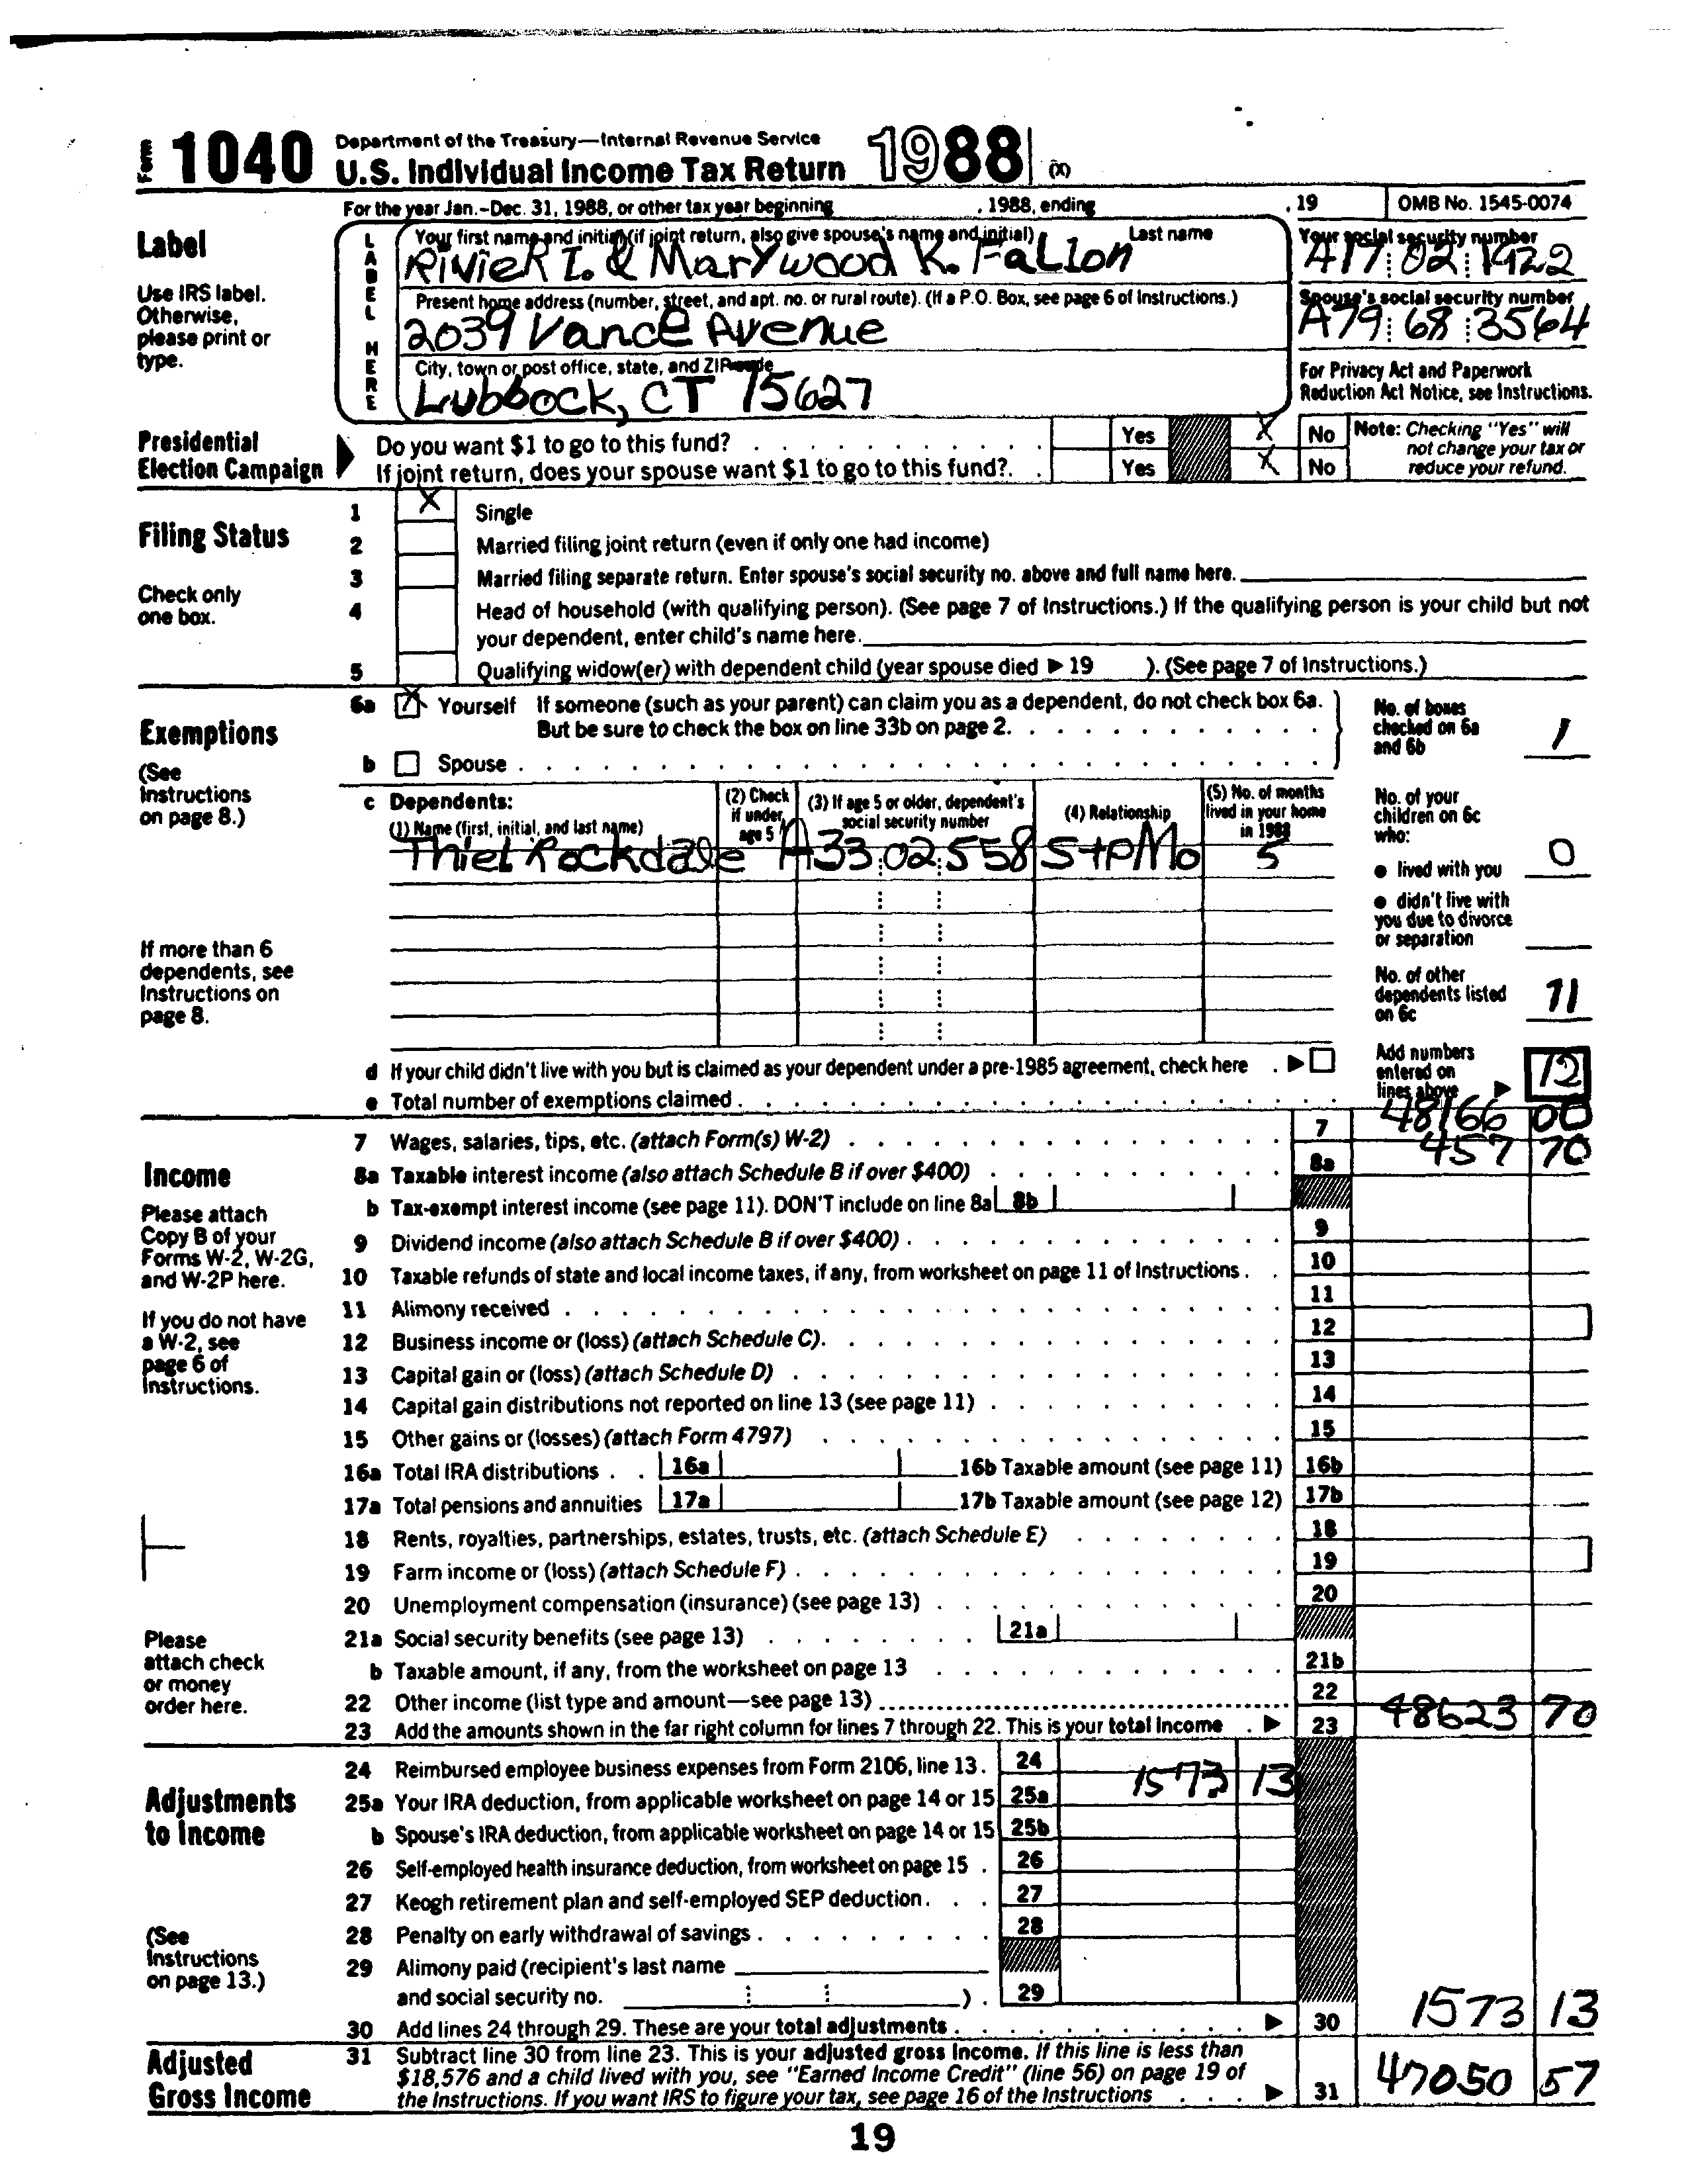 Form 1040 Department of the Treasury—Internal Revenue Service
U.S. Individual Income Tax Return 1988 (X)
For the year Jan.-Dec. 31, 1988, or other tax year beginning , 1988, ending , 19 OMB No. 1545-0074
Label
Use IRS label. Otherwise, please print or type.
LABEL HERE
Your first name and initial (if joint return, also give spouse's name and initial) Last name
RiVieR I. & MarYwood K. FaLLon
Your social security number
A17 02 1922
Present home address (number, street, and apt. no. or rural route). (If a P.O. Box, see page 6 of Instructions.)
2039 Vance Avenue
Spouse's social security number
A79 68 3564
City, town or post office, state, and ZIP code
Lubbock, CT 75627
For Privacy Act and Paperwork Reduction Act Notice, see Instructions.
Presidential Election Campaign
Do you want $1 to go to this fund? Yes X No
If joint return, does your spouse want $1 to go to this fund? Yes X No
Note: Checking "Yes" will not change your tax or reduce your refund.
Filing Status
Check only one box.
1 X Single
2 Married filing joint return (even if only one had income)
3 Married filing separate return. Enter spouse's social security no. above and full name here.
4 Head of household (with qualifying person). (See page 7 of Instructions.) If the qualifying person is your child but not
your dependent, enter child's name here.
5 Qualifying widow(er) with dependent child (year spouse died ▶ 19 ). (See page 7 of Instructions.)
Exemptions
(See Instructions on page 8.)
6a X Yourself If someone (such as your parent) can claim you as a dependent, do not check box 6a.
But be sure to check the box on line 33b on page 2.
b Spouse
No. of boxes checked on 6a and 6b 1
c Dependents:
(1) Name (first, initial, and last name) (2) Check if under age 5 (3) If age 5 or older, dependent's social security number (4) Relationship (5) No. of months lived in your home in 1988
Thiel Rockdale A33 02 558 StpMo 5
No. of your children on 6c who:
● lived with you 0
● didn't live with you due to divorce or separation
No. of other dependents listed on 6c 11
If more than 6 dependents, see Instructions on page 8.
d If your child didn't live with you but is claimed as your dependent under a pre-1985 agreement, check here ▶
e Total number of exemptions claimed
Add numbers entered on lines above ▶ 12
Income
Please attach Copy B of your Forms W-2, W-2G, and W-2P here.
If you do not have a W-2, see page 6 of Instructions.
Please attach check or money order here.
7 Wages, salaries, tips, etc. (attach Form(s) W-2) 7 48166 00
8a Taxable interest income (also attach Schedule B if over $400) 8a 457 70
b Tax-exempt interest income (see page 11). DON'T include on line 8a 8b
9 Dividend income (also attach Schedule B if over $400) 9
10 Taxable refunds of state and local income taxes, if any, from worksheet on page 11 of Instructions 10
11 Alimony received 11
12 Business income or (loss) (attach Schedule C) 12
13 Capital gain or (loss) (attach Schedule D) 13
14 Capital gain distributions not reported on line 13 (see page 11) 14
15 Other gains or (losses) (attach Form 4797) 15
16a Total IRA distributions 16a 16b Taxable amount (see page 11) 16b
17a Total pensions and annuities 17a 17b Taxable amount (see page 12) 17b
18 Rents, royalties, partnerships, estates, trusts, etc. (attach Schedule E) 18
19 Farm income or (loss) (attach Schedule F) 19
20 Unemployment compensation (insurance) (see page 13) 20
21a Social security benefits (see page 13) 21a
b Taxable amount, if any, from the worksheet on page 13 21b
22 Other income (list type and amount—see page 13) 22
23 Add the amounts shown in the far right column for lines 7 through 22. This is your total income ▶ 23 48623 70
Adjustments to Income
(See Instructions on page 13.)
24 Reimbursed employee business expenses from Form 2106, line 13. 24
25a Your IRA deduction, from applicable worksheet on page 14 or 15 25a 1573 13
b Spouse's IRA deduction, from applicable worksheet on page 14 or 15 25b
26 Self-employed health insurance deduction, from worksheet on page 15 26
27 Keogh retirement plan and self-employed SEP deduction 27
28 Penalty on early withdrawal of savings 28
29 Alimony paid (recipient's last name
and social security no. ) 29
30 Add lines 24 through 29. These are your total adjustments ▶ 30 1573 13
Adjusted Gross Income
31 Subtract line 30 from line 23. This is your adjusted gross income. If this line is less than
$18,576 and a child lived with you, see "Earned Income Credit" (line 56) on page 19 of
the Instructions. If you want IRS to figure your tax, see page 16 of the Instructions ▶ 31 47050 57
19